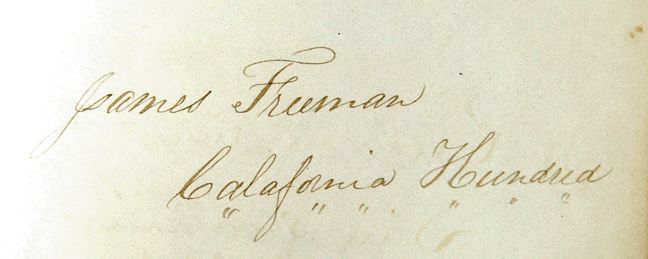 James Freeman
Calafornia Hundred
" " " " " "